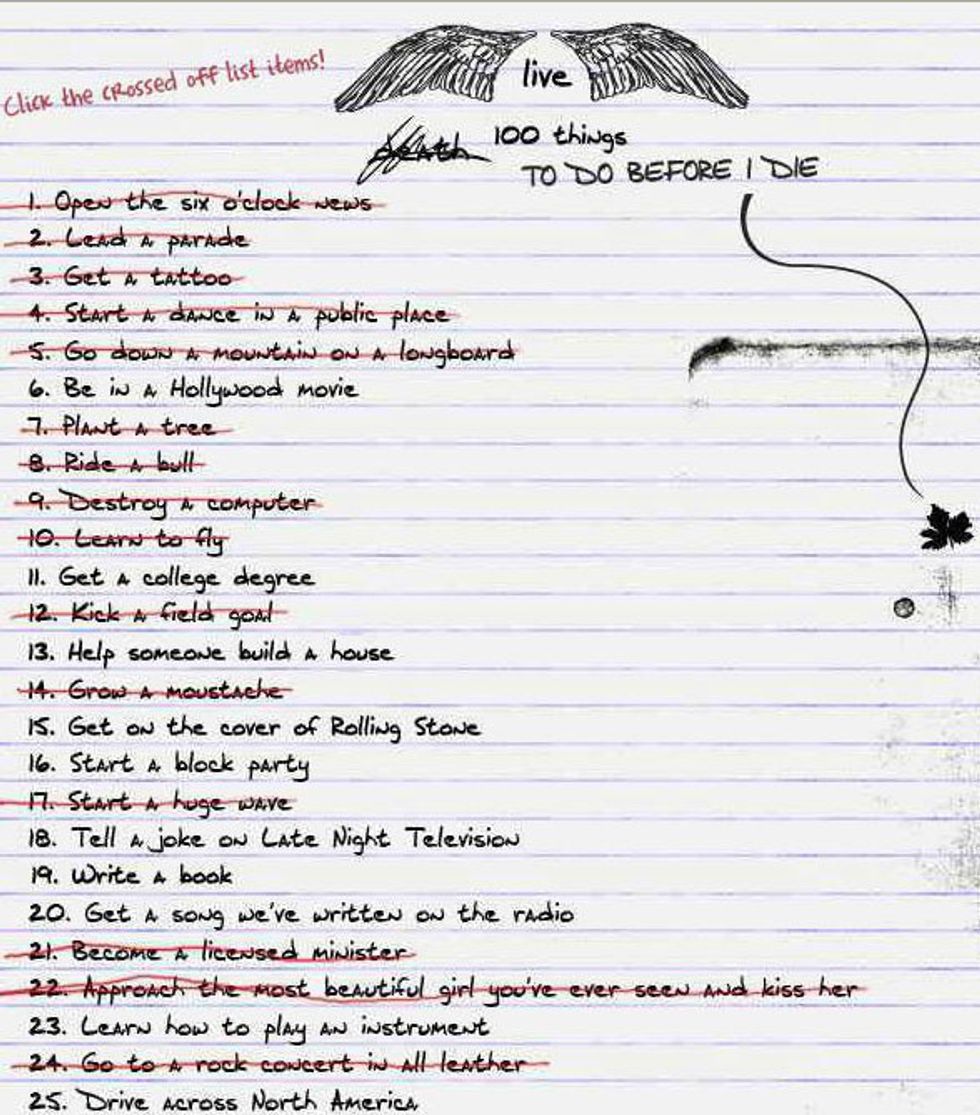 Click the crossed off list items!
live
death 100 things
TO DO BEFORE I DIE
1. Open the six o'clock news
2. Lead a parade
3. Get a tattoo
4. Start a dance in a public place
5. Go down a mountain on a longboard
6. Be in a Hollywood movie
7. Plant a tree
8. Ride a bull
9. Destroy a computer
10. Learn to fly
11. Get a college degree
12. Kick a field goal
13. Help someone build a house
14. Grow a moustache
15. Get on the cover of Rolling Stone
16. Start a block party
17. Start a huge wave
18. Tell a joke on Late Night Television
19. Write a book
20. Get a song we've written on the radio
21. Become a licensed minister
22. Approach the most beautiful girl you've ever seen and kiss her
23. Learn how to play an instrument
24. Go to a rock concert in all leather
25. Drive across North America